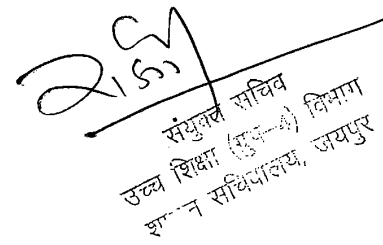 संयुक्त सचिव
उच्च शिक्षा (ग्रुप-4) विभाग
सचिवालय, जयपुर